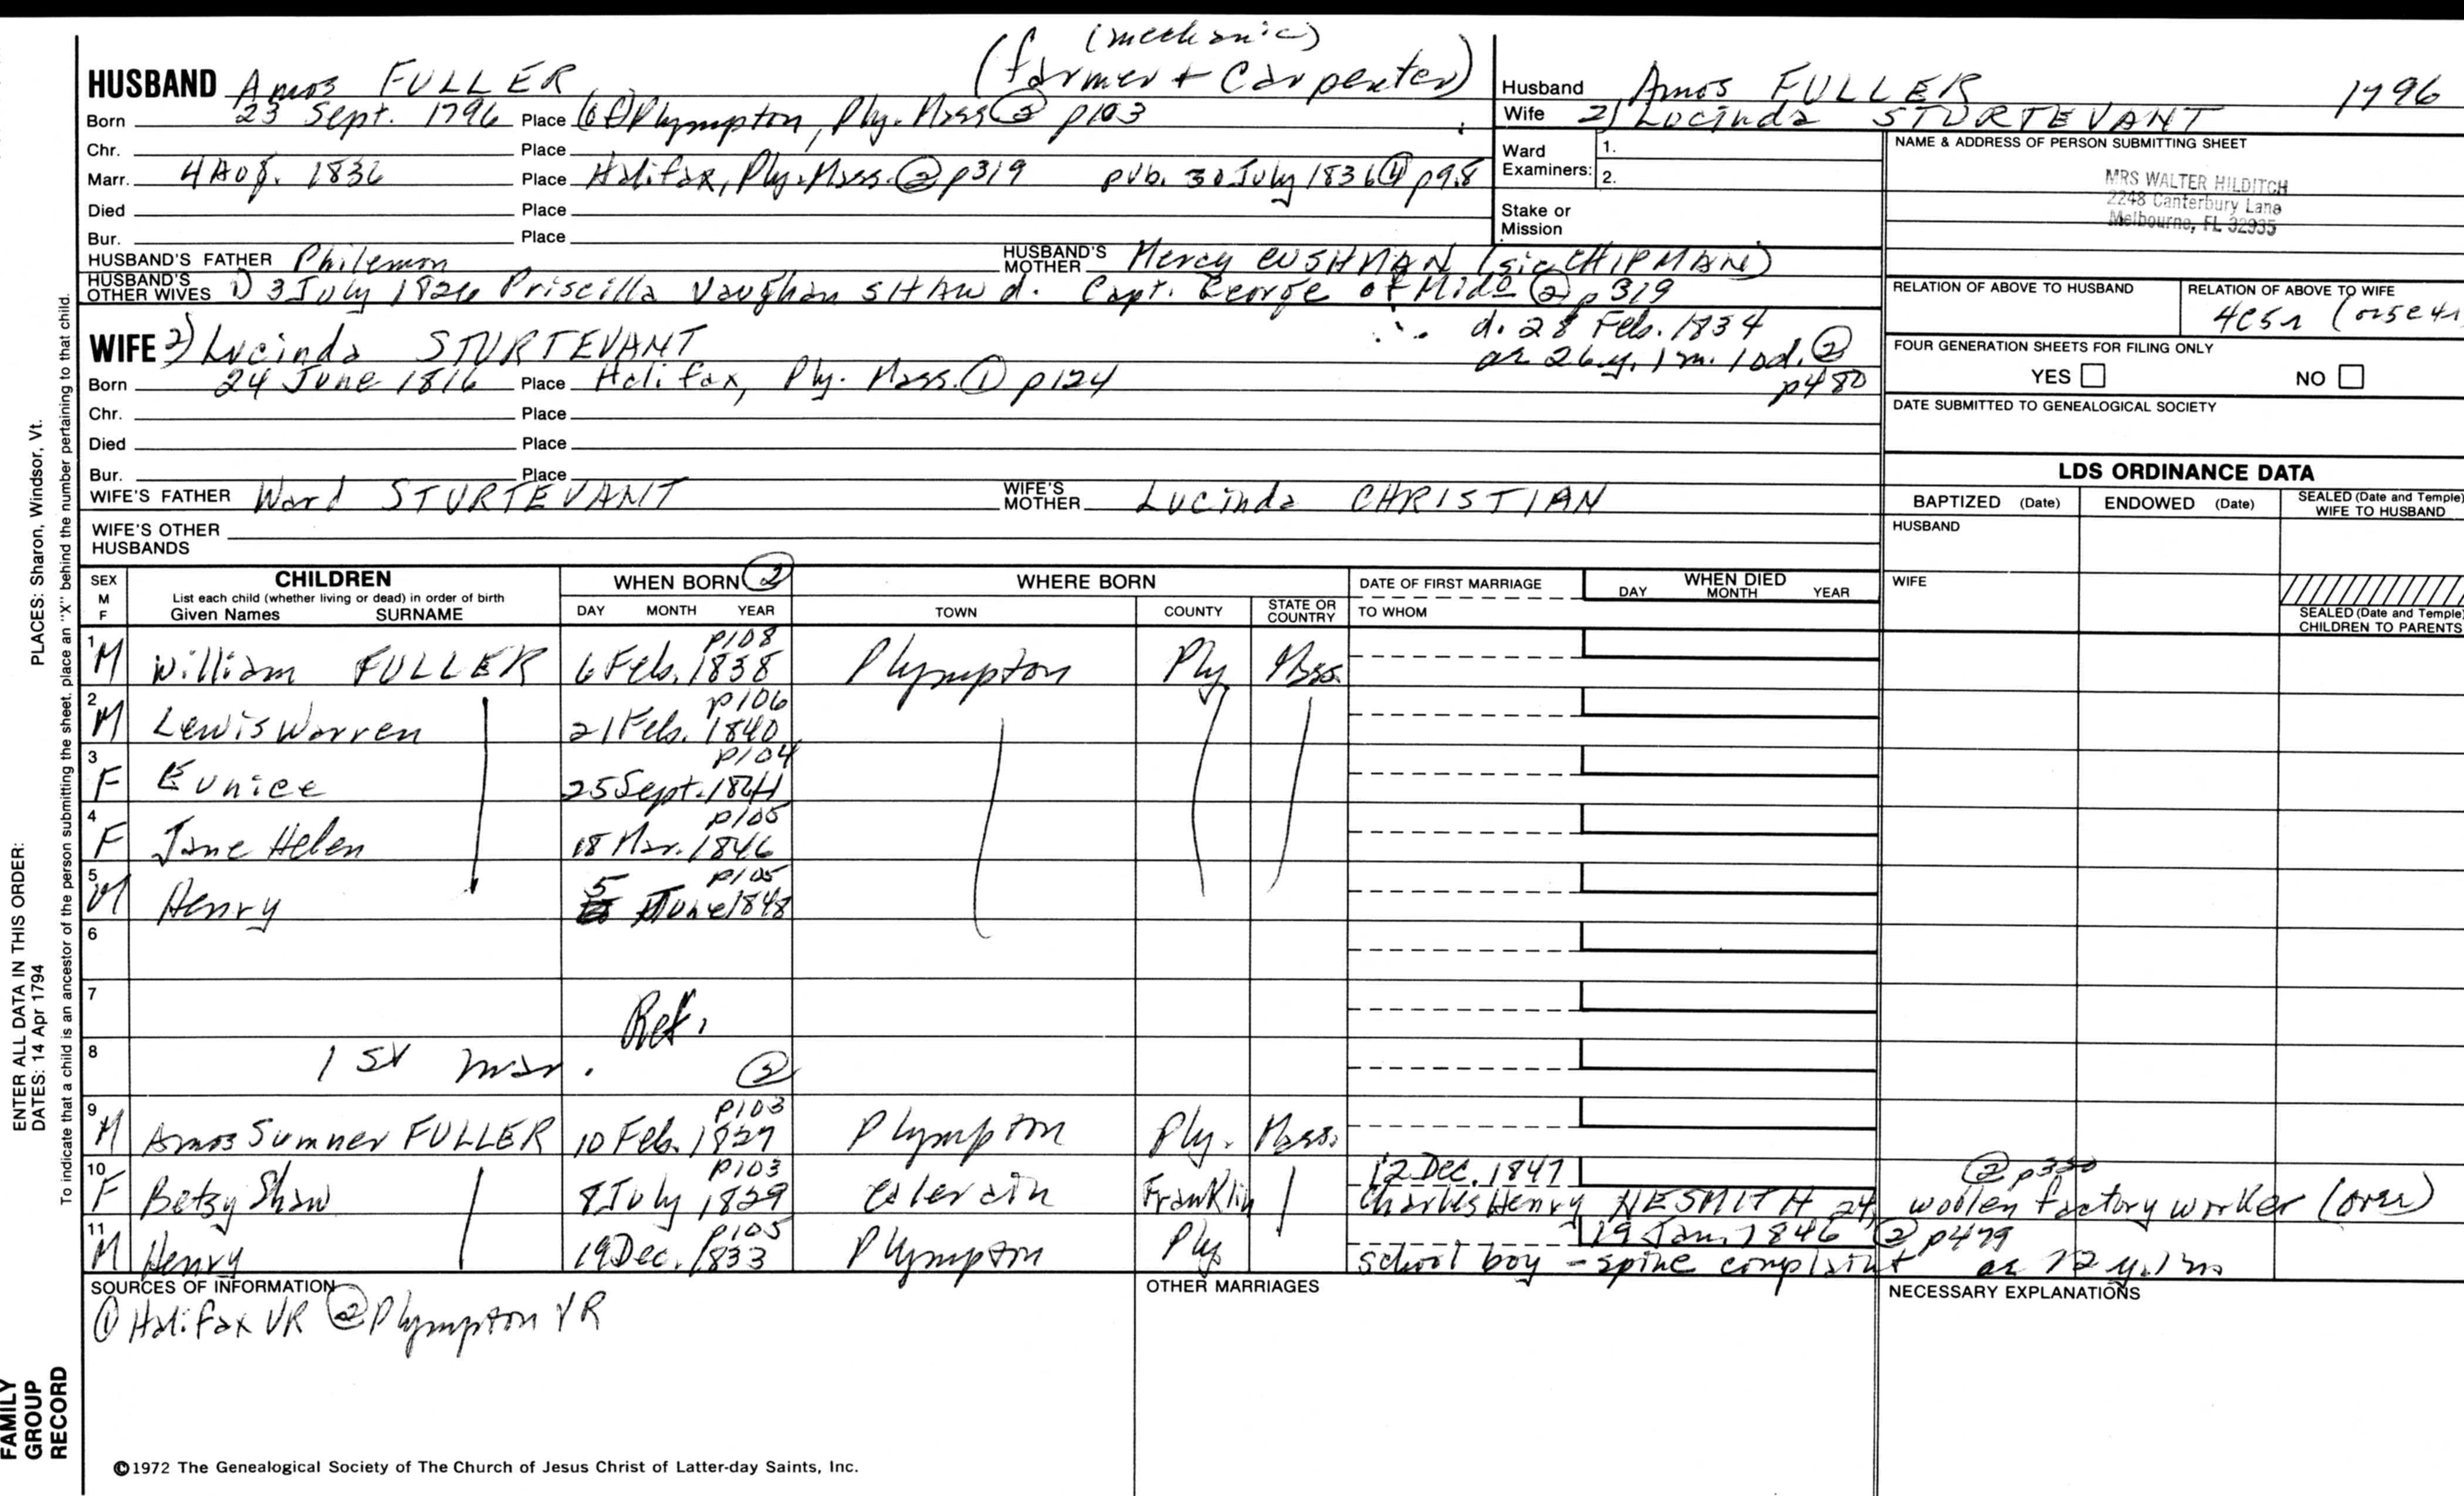 (mechanic)
(farmer + Carpenter)
HUSBAND Amos FULLER
Born 23 Sept. 1796 Place Plympton, Ply. Mass ② p103
Chr. Place
Marr. 4 Aug. 1836 Place Halifax, Ply. Mass. ② p319 pub. 30 July 1836 ④ p98
Died Place
Bur. Place
HUSBAND'S FATHER Philemon HUSBAND'S MOTHER Mercy CUSHMAN (sic CHIPMAN)
HUSBAND'S OTHER WIVES 1) 3 July 1826 Priscilla Vaughan SHAW d. Capt. George of Mido ② p319
d. 28 Feb. 1834
ae 26y. 1m. 10d. ②
p480
WIFE 2) Lucinda STURTEVANT
Born 24 June 1816 Place Halifax, Ply. Mass. ① p124
Chr. Place
Died Place
Bur. Place
WIFE'S FATHER Ward STURTEVANT WIFE'S MOTHER Lucinda CHRISTIAN
WIFE'S OTHER HUSBANDS
Husband Amos FULLER 1796
Wife 2) Lucinda STURTEVANT
Ward Examiners: 1.
2.
Stake or Mission
NAME & ADDRESS OF PERSON SUBMITTING SHEET
MRS WALTER HILDITCH
2248 Canterbury Lane
Melbourne, FL 32935
RELATION OF ABOVE TO HUSBAND RELATION OF ABOVE TO WIFE
FOUR GENERATION SHEETS FOR FILING ONLY
YES NO
DATE SUBMITTED TO GENEALOGICAL SOCIETY
LDS ORDINANCE DATA
BAPTIZED (Date) ENDOWED (Date) SEALED (Date and Temple) WIFE TO HUSBAND
HUSBAND
WIFE
SEALED (Date and Temple) CHILDREN TO PARENTS
SEX M F CHILDREN WHEN BORN ② WHERE BORN DATE OF FIRST MARRIAGE WHEN DIED
List each child (whether living or dead) in order of birth
Given Names SURNAME DAY MONTH YEAR TOWN COUNTY STATE OR COUNTRY TO WHOM DAY MONTH YEAR
p108
1 M William FULLER 6 Feb. 1838 Plympton Ply Mass.
p106
2 M Lewis Warren 21 Feb. 1840
p104
3 F Eunice 25 Sept. 1844
p105
4 F Jane Helen 18 Mar. 1846
p105
5 M Henry 5 June 1848
6
7 Ref.
8 1st mar. ②
p103
9 M Amos Sumner FULLER 10 Feb. 1827 Plympton Ply. Mass.
p103 12 Dec. 1847 ② p330
10 F Betsy Shaw 8 July 1829 Colerain Franklin Charles Henry NESMITH 24 woolen factory worker (over)
p105 19 Jan. 1846 ② p479
11 M Henry 19 Dec. 1833 Plympton Ply school boy - spine complaint ae 12 y. 1 m
SOURCES OF INFORMATION OTHER MARRIAGES NECESSARY EXPLANATIONS
① Halifax VR ② Plympton VR
©1972 The Genealogical Society of The Church of Jesus Christ of Latter-day Saints, Inc.
ENTER ALL DATA IN THIS ORDER:
DATES: 14 Apr 1794 PLACES: Sharon, Windsor, Vt.
To indicate that a child is an ancestor of the person submitting the sheet, place an "X" behind the number pertaining to that child.
FAMILY
GROUP
RECORD